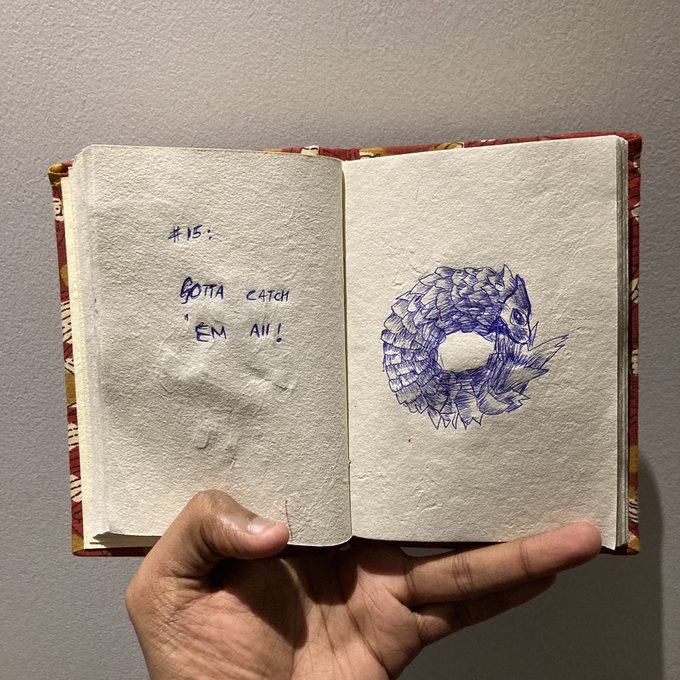 #15:
GOTTA CATCH
'EM All!